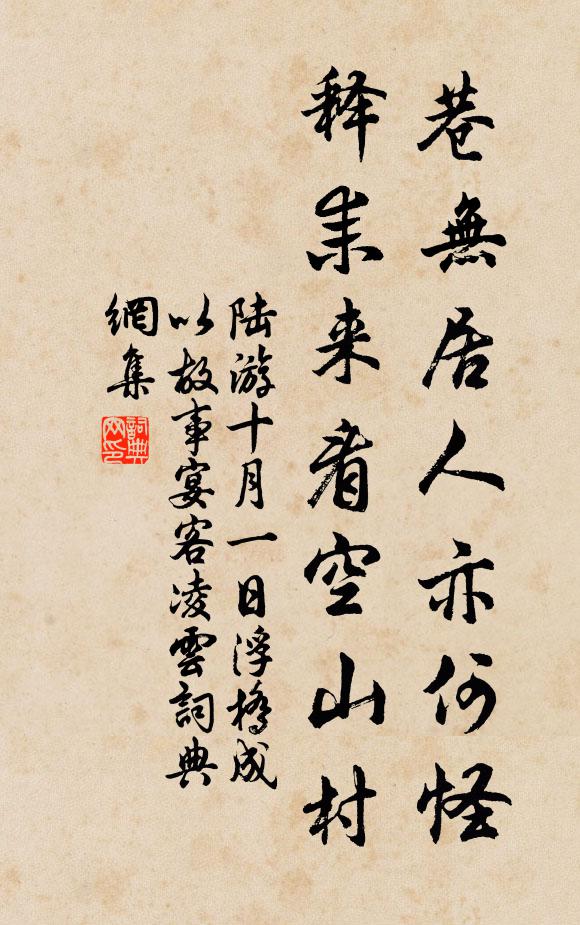 巷無居人亦何怪
释耒来看空山村
陆游十月一日浮橋成
以故事宴客凌雲詞典
網集
詞典
网印